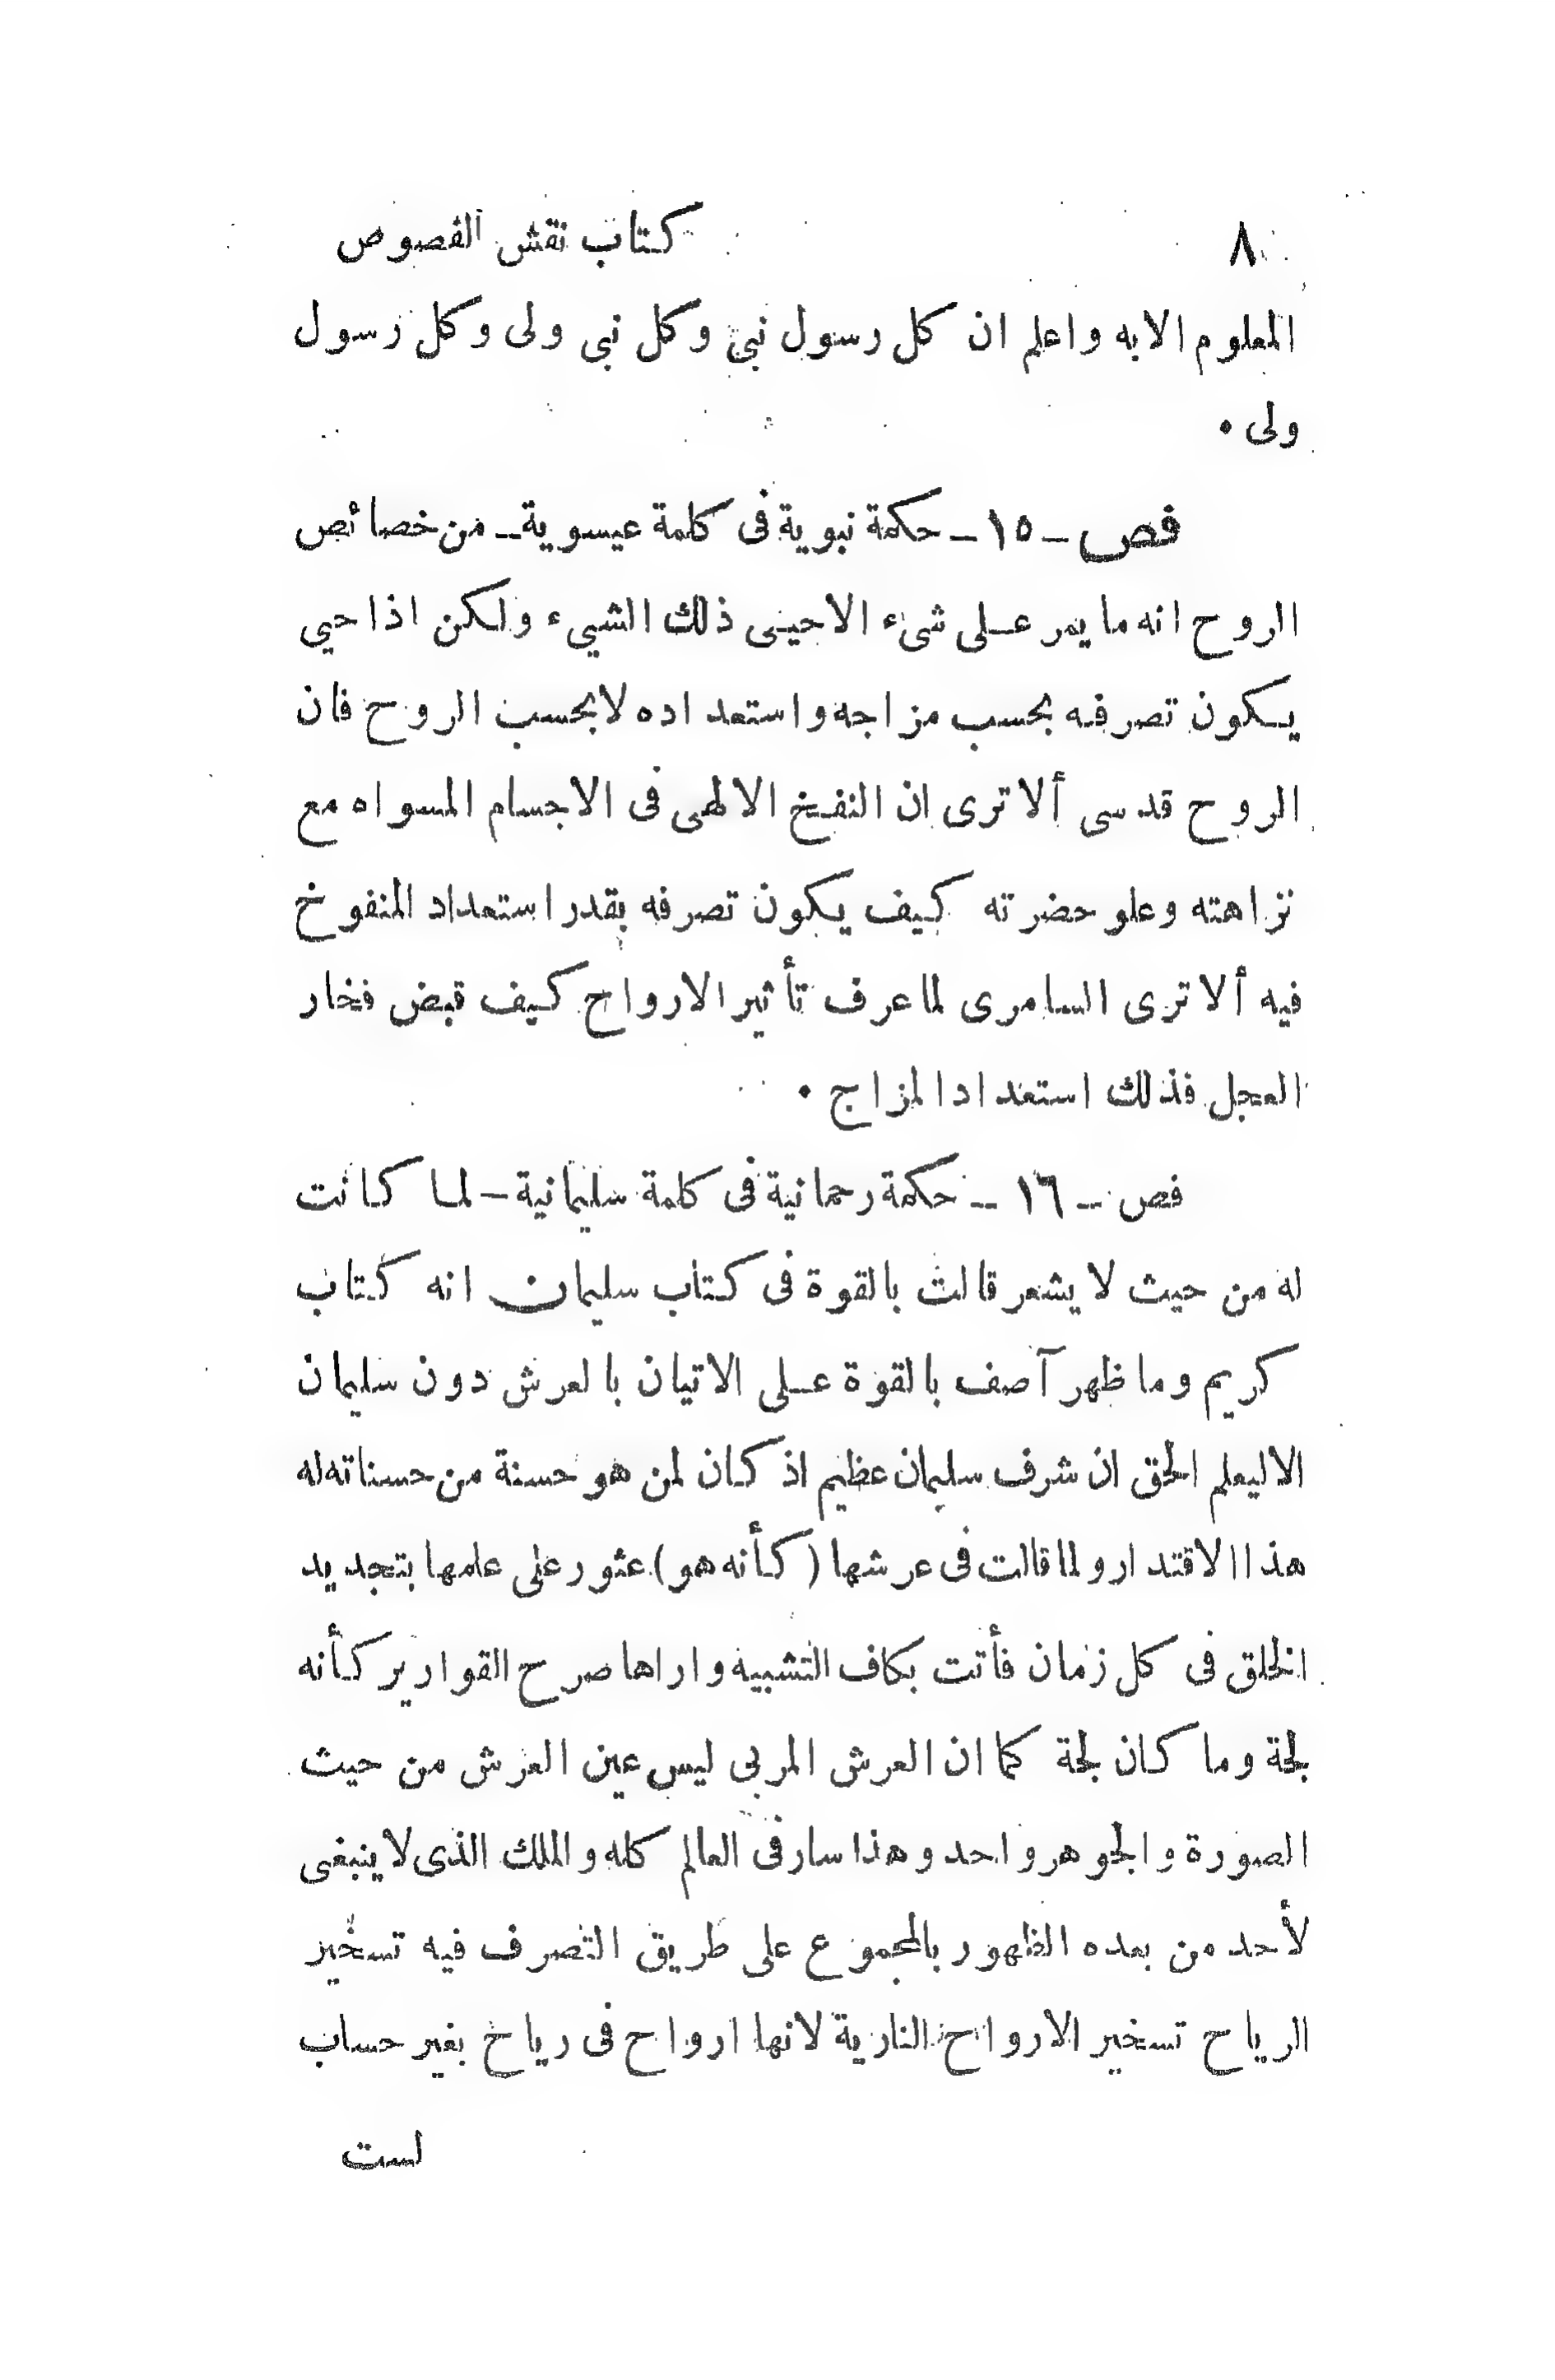 ٨ كتاب نقش الفصوص
المعلوم الا به واعلم ان كل رسول نبي وكل نبي ولى وكل رسول
ولى ٠
فص ــ ١٥ ــ حكمة نبوية فى كلمة عيسوية ــ من خصائص
الروح انه ما يمر عـلى شىء الاحيـى ذلك الشيء ولكن اذا حيي
يـكون تصرفه بحسب مزاجه واستعداده لا بحسب الروح فان
الروح قدسى ألا ترى ان النفخ الالهى فى الاجسام المسواه مع
نزاهته وعلو حضرته كيف يكون تصرفه بقدر استعداد المنفوخ
فيه ألا ترى السامرى لما عرف تأثير الارواح كيف قبض فخار
العجل فذلك استعداد المزاج ٠
فص ــ ١٦ ــ حكمة رحمانية فى كلمة سليمانية ــ لمـا كانت
له من حيث لا يشعر قالت بالقوة فى كتاب سليمان انه كتاب
كريم وما ظهر آصف بالقوة عـلى الاتيان بالعرش دون سليمان
الا ليعلم الحق ان شرف سليمان عظيم اذ كان لمن هو حسنة من حسناته له
هذا الاقتدار ولما قالت فى عرشها (كأنه هو) عثور على علمها بتجديد
الخلق فى كل زمان فأتت بكاف التشبيه واراها صرح القوارير كأنه
لجة وما كان لجة كما ان العرش المربى ليس عين العرش من حيث
الصورة والجوهر واحد وهذا سار فى العالم كله والملك الذى لا ينبغى
لأحد من بعده الظهور بالمجموع على طريق التصرف فيه تسخير
الرياح تسخير الارواح النارية لانها ارواح فى رياح بغير حساب
لست